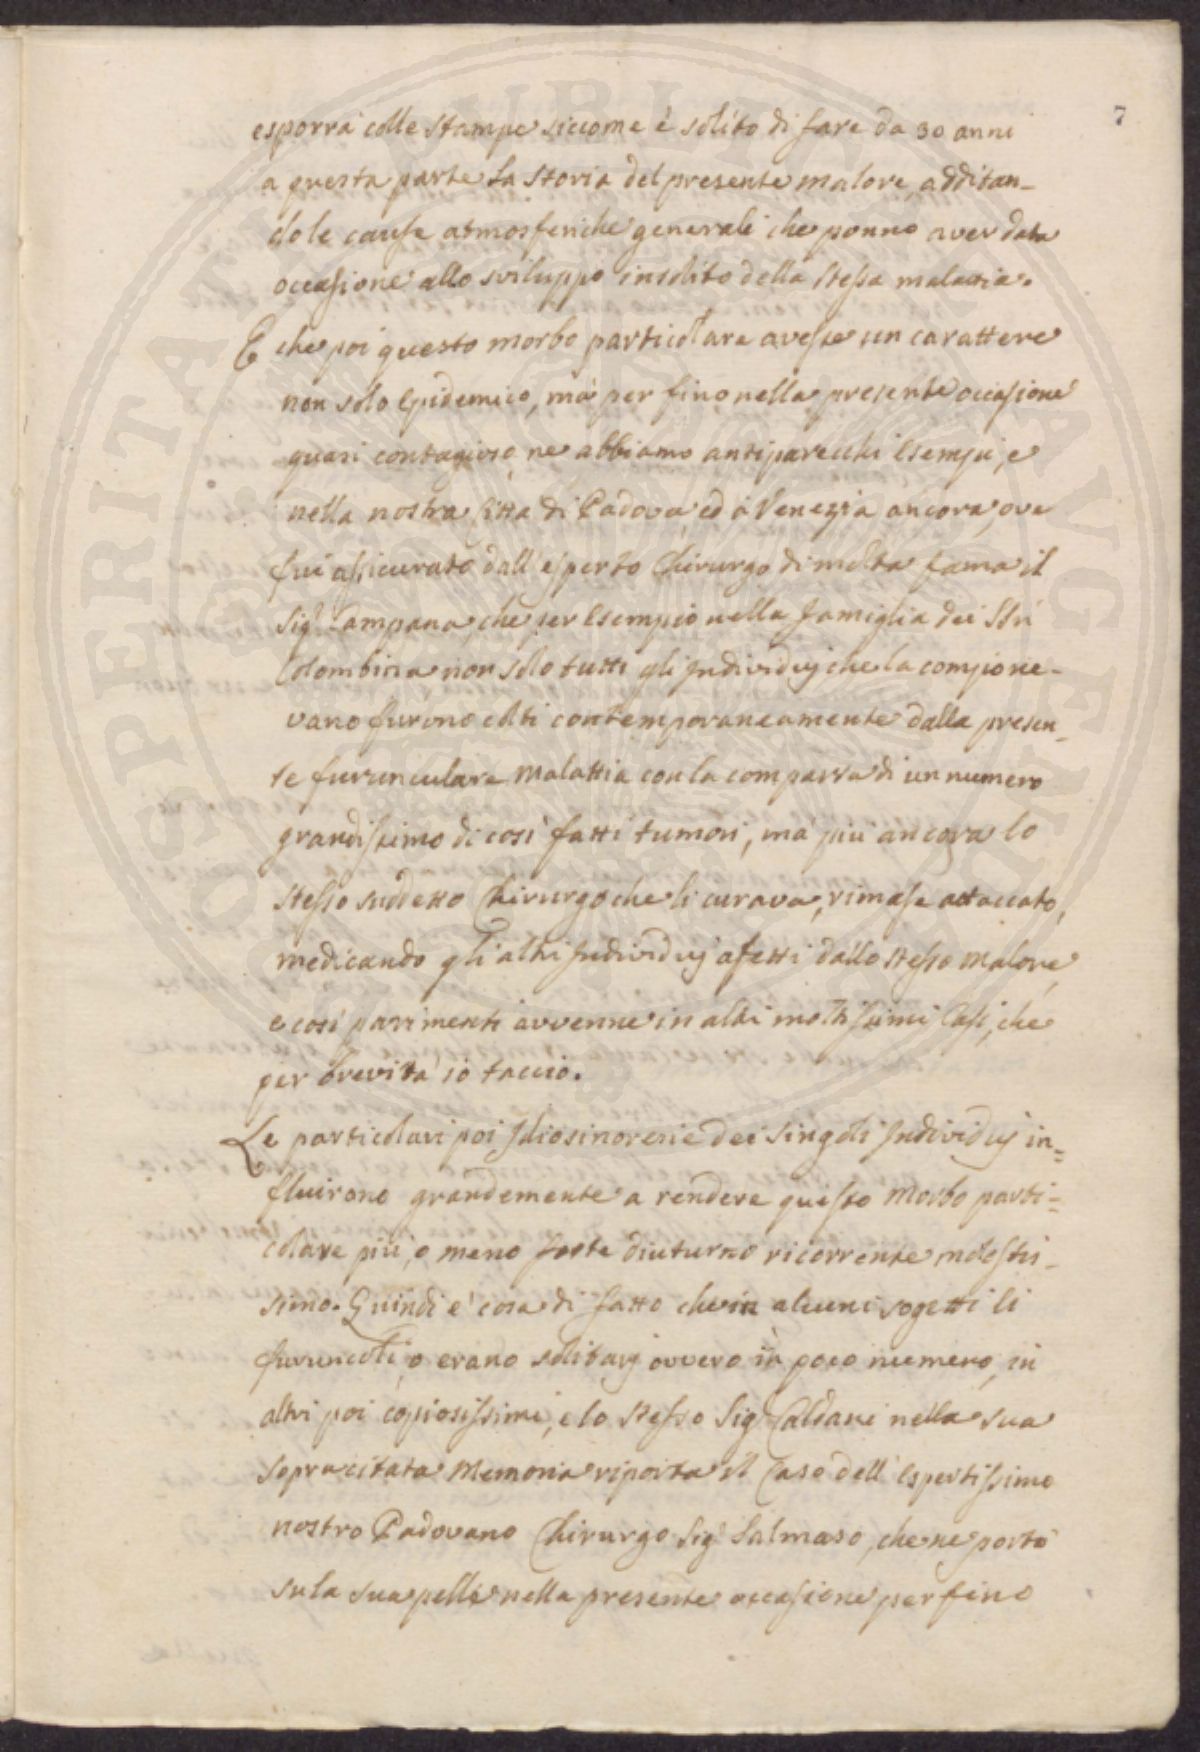 7
esporrà colle stampe siccome è solito di fare da 30 anni
a questa parte la storia del presente malore, additan-
do le cause atmosferiche generali che ponno aver data
occasione allo sviluppo insolito della stessa malattia.
E che poi questo morbo particolare avesse un carattere
non solo Epidemico, mà per fino nella presente occasione
quasi contagioso, ne abbiamo anti parecchi Esempii, e
nella nostra Città di Padova, ed à Venezia ancora, ove
fui assicurato dall'esperto Chirurgo di molta fama il
Sigr Campana, che per Esempio nella famiglia dei SSri
Colombina non solo tutti gli Individuj che la compone-
vano furono colti contemporaneamente dalla presen-
te furunculare malattia con la comparsa di un numero
grandissimo di così fatti tumori, mà più ancora lo
stesso suddetto Chirurgo che li curava, rimase attaccato,
medicando gli altri Individuj afetti dallo stesso malore,
e così parimenti avvenne in altri moltissimi Casi, che
per brevità io taccio.
Le particolari poi Idiosincresie dei singoli Individuj in=
fluirono grandemente a rendere questo morbo parti=
colare più, o meno forte diuturno ricorrente molestis-
simo. Quindi è cosa di fatto che in alcuni sogetti li
furuncoli, o erano solitarj ovvero in poco numero, in
altri poi copiosissimi, e lo stesso Sigr Caldani nella sua
sopracitata Memoria riporta il Caso dell'Espertissimo
nostro Padovano Chirurgo Sigr Salmaso, che ne portò
su la sua pelle nella presente occasione per fino